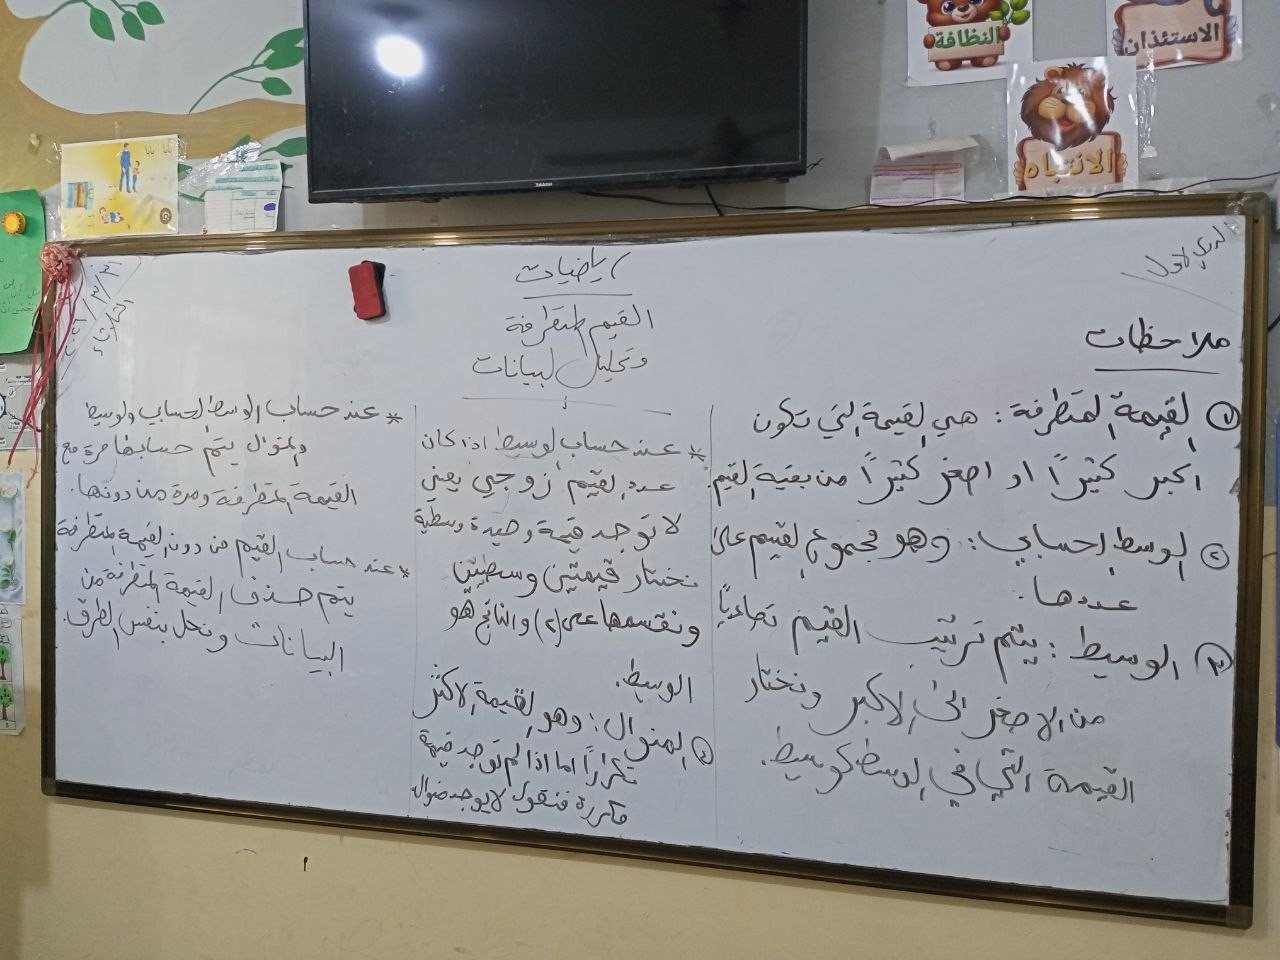 النظافة
الاستئذان
الانتباه
بابا بابا
الدرس الاول
رياضيات
القيم المتطرفة
وتحليل البيانات
ملاحظات
١ القيمة المتطرفة: هي القيمة التي تكون
اكبر كثيراً او اصغر كثيراً من بقية القيم
٢ الوسط الحسابي: وهو مجموع القيم على
عددها.
٣ الوسيط: يتم ترتيب القيم تصاعدياً
من الاصغر الى الاكبر ونختار
القيمة التي في الوسط كوسيط.
* عند حساب الوسيط اذا كان
عدد القيم زوجي يعني
لا توجد قيمة وحيدة وسطية
نختار قيمتين وسطيتين
ونقسمها على (٢) والناتج هو
الوسيط.
٤ المنوال: وهو القيمة الاكثر
تكراراً اما اذا لم توجد قيمة
مكررة فنقول لا يوجد منوال
* عند حساب الوسط الحسابي والوسيط
والمنوال يتم حسابها مرة مع
القيمة المتطرفة ومرة من دونها.
* عند حساب القيم من دون القيمة المتطرفة
يتم حذف القيمة المتطرفة من
البيانات ونحل بنفس الطرق.